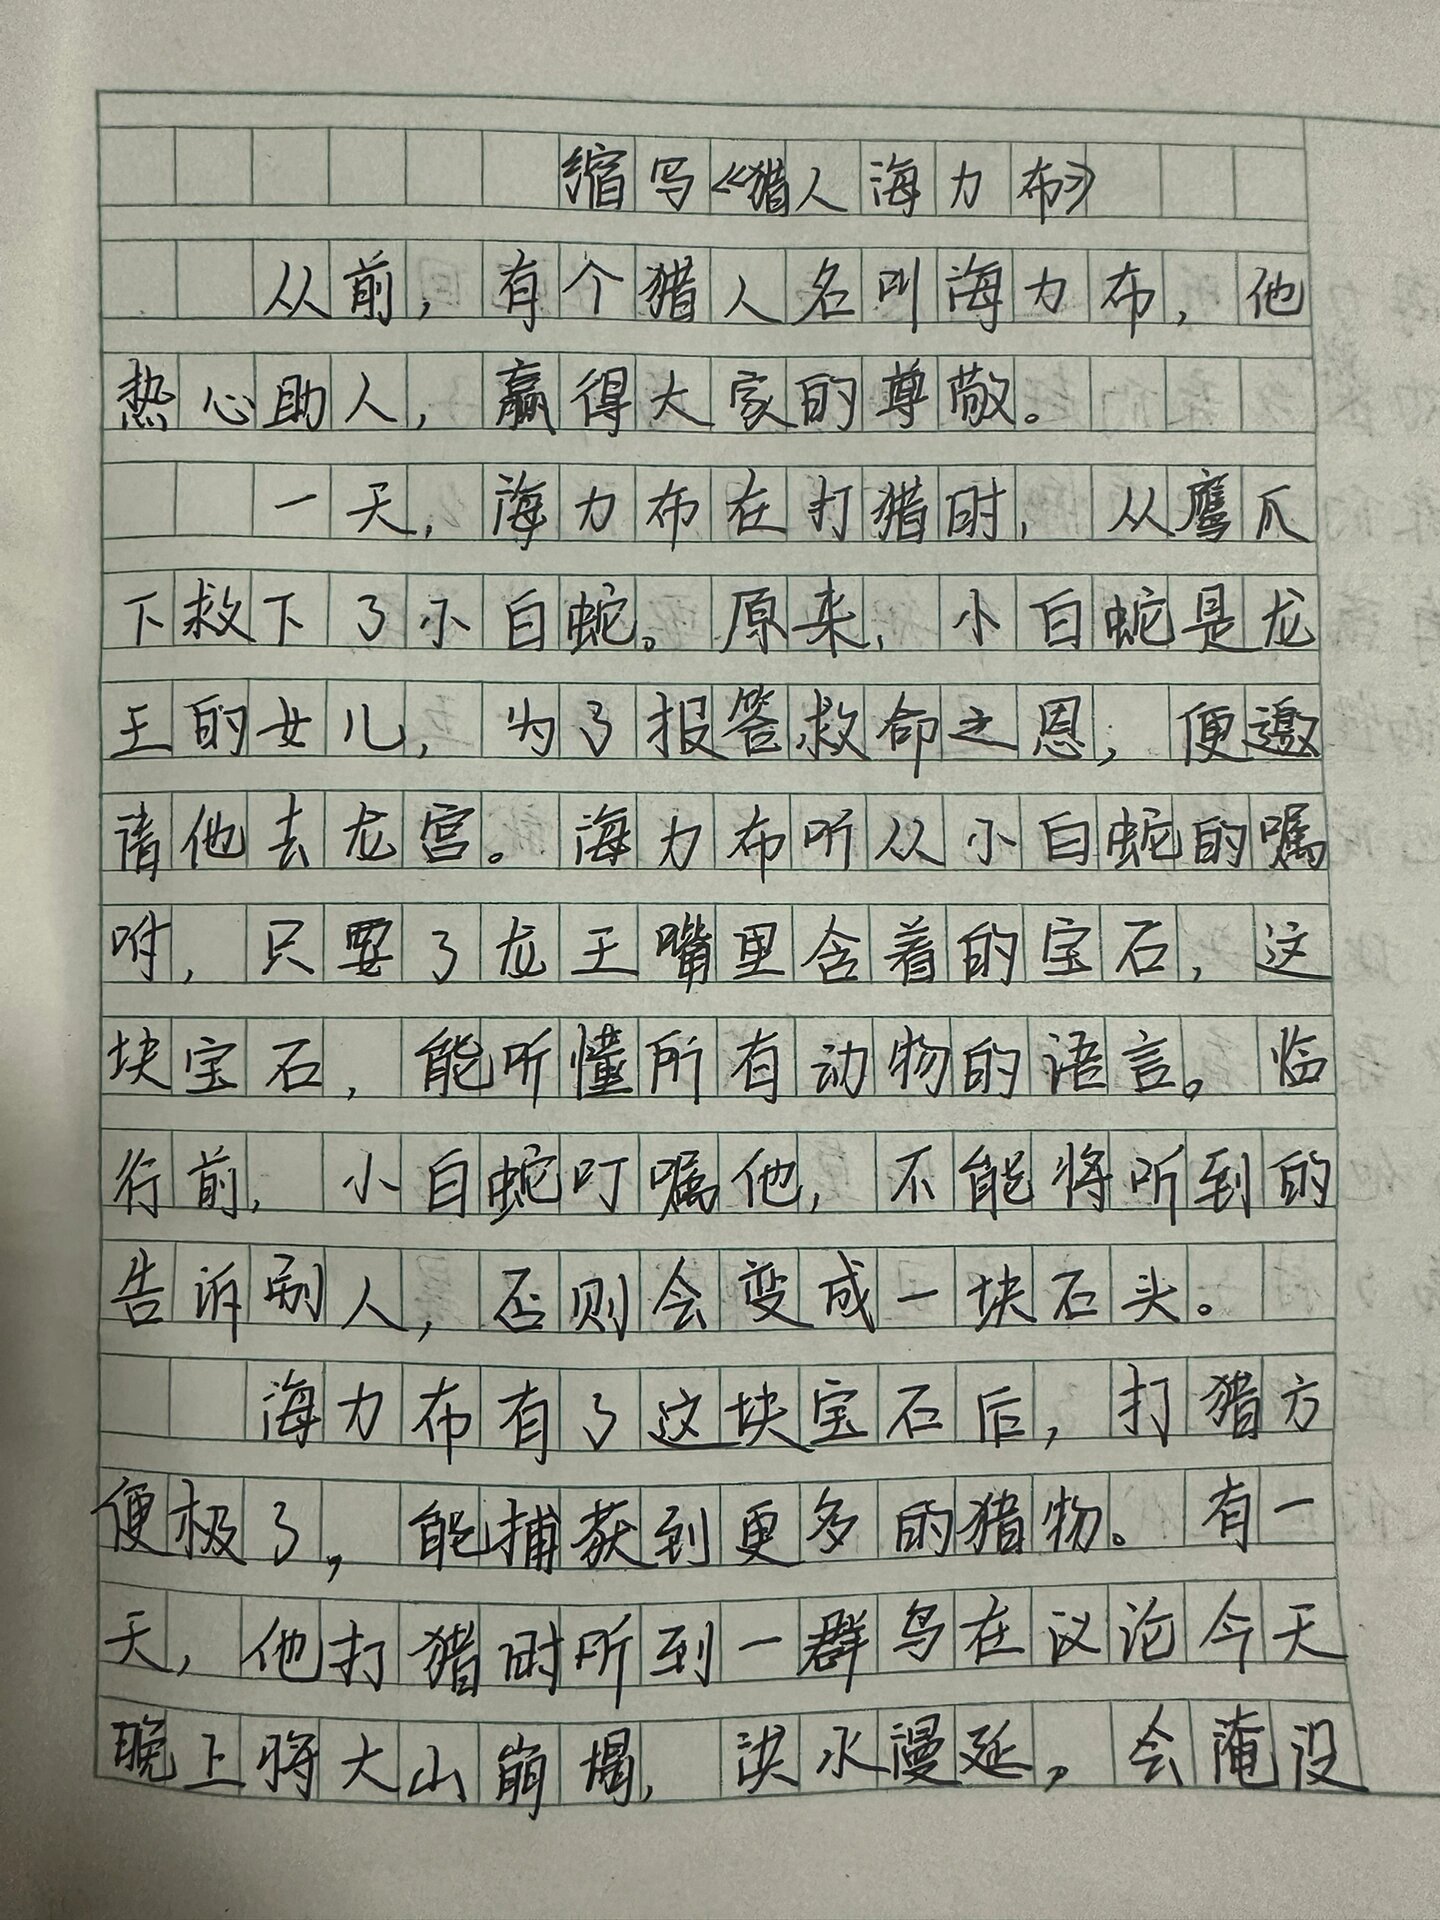 缩写《猎人海力布》
从前，有个猎人名叫海力布，他
热心助人，赢得大家的尊敬。
一天，海力布在打猎时，从鹰爪
下救下了小白蛇。原来，小白蛇是龙
王的女儿，为了报答救命之恩，便邀
请他去龙宫。海力布听从小白蛇的嘱
咐，只要了龙王嘴里含着的宝石，这
块宝石，能听懂所有动物的语言。临
行前，小白蛇叮嘱他，不能将听到的
告诉别人，否则会变成一块石头。
海力布有了这块宝石后，打猎方
便极了，能捕获到更多的猎物。有一
天，他打猎时听到一群鸟在议论今天
晚上将大山崩塌，洪水漫延，会淹没